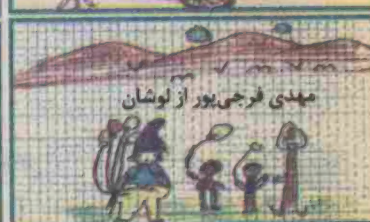 مهدی فرجی‌پور از لوشان